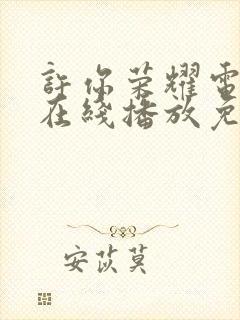 許你荣耀電
在綫播放免
安苡莫